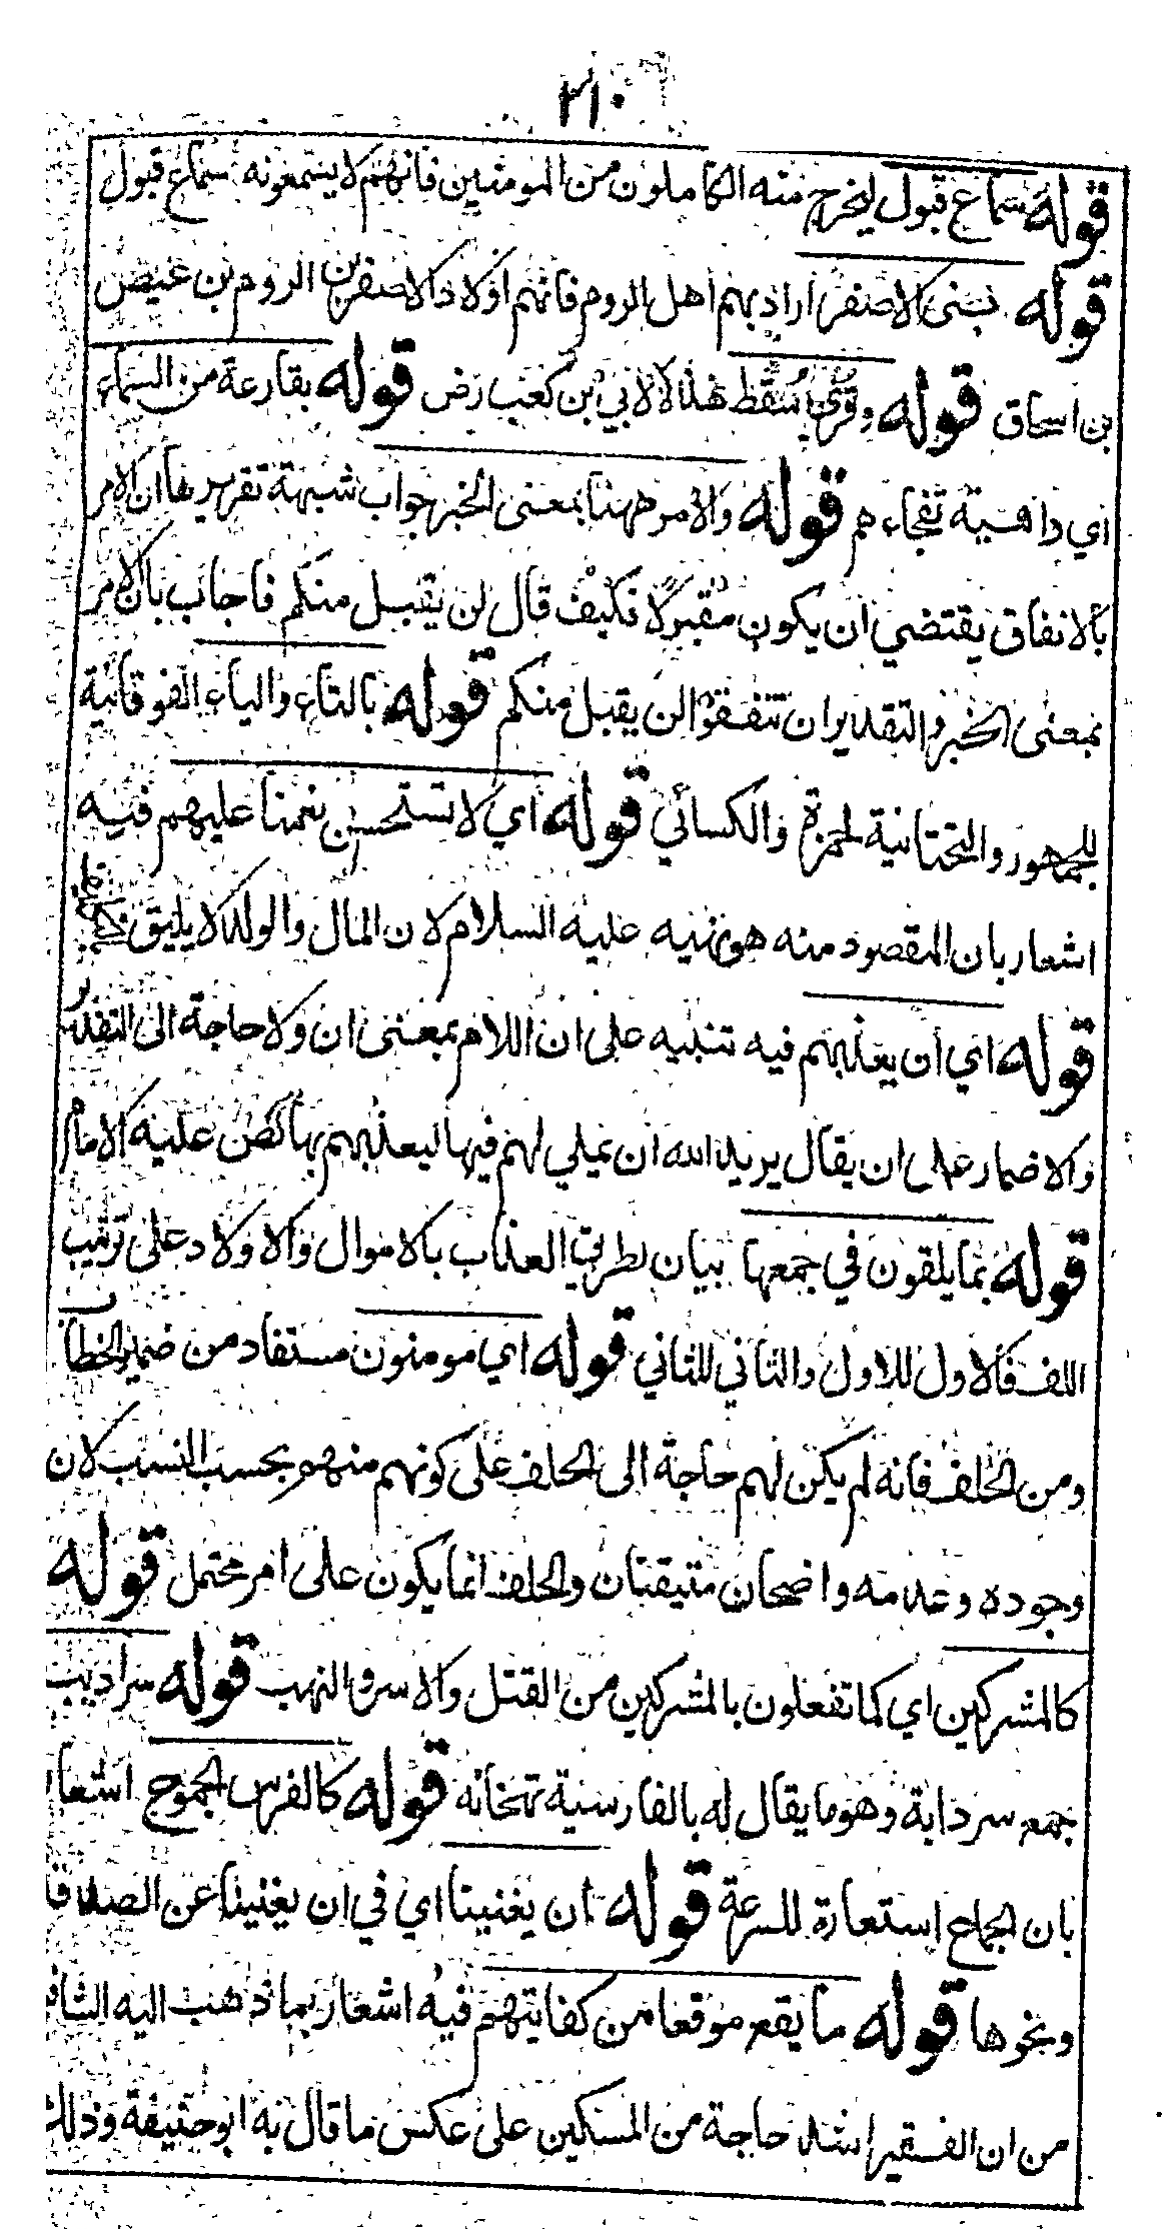 ٣١٠
قوله سماع قبول ليخرج منه الكاملون من المومنين فانهم لا يسمعونه سماع قبول
قوله بني الاصفر اراد بهم اهل الروم فانهم اولاد الاصفر بن الروم بن عيص
بن اسحاق قوله وقرئ اسقط هذا لابي بن كعب رض قوله بقارعة من السماء
اي داهية تفجاء هم قوله والامر ههنا بمعنى الخبر جواب شبهة تقريرها ان الامر
بالانفاق يقتضي ان يكون مقبولا فكيف قال لن يقبل منكم فاجاب بان الامر
بمعنى الخبر والتقدير ان تنفقوا لن يقبل منكم قوله بالتاء والياء الفوقانية
للجمهور والتحتانية لحمزة والكسائي قوله اي لا تستحسن نعمنا عليهم فيه
اشعار بان المقصود منه هو نهيه عليه السلام لان المال والولد لا يليق
قوله اي ان يعذبهم فيه تنبيه على ان اللام بمعنى ان ولا حاجة الى التقدير
والاضمار على ان يقال يريد الله ان يملي لهم فيها ليعذبهم بها كما نص عليه الامام
قوله بما يلقون في جمعها بيان لطريق العذاب بالاموال والاولاد على ترتيب
اللف فالاول للاول والثاني للثاني قوله اي مومنون مستفاد من ضمير الخطاب
ومن الحلف فانه لم يكن لهم حاجة الى الحلف على كونهم منهم بحسب النسب لان
وجوده وعدمه واضحان متيقنان والحلف انما يكون على امر محتمل قوله
كالمشركين اي كما تفعلون بالمشركين من القتل والاسر والنهب قوله سراديب
جمع سردابة وهو ما يقال له بالفارسية تهخانه قوله كالفرس الجموح اشعا
بان الجماح استعارة للسرعة قوله ان يغنينا اي في ان يغنينا عن الصدقا
ونحوها قوله ما يقع موقعا من كفايتهم فيه اشعار بما ذهب اليه الشاف
من ان الفقير اشد حاجة من المسكين على عكس ما قال به ابو حنيفة وذلك